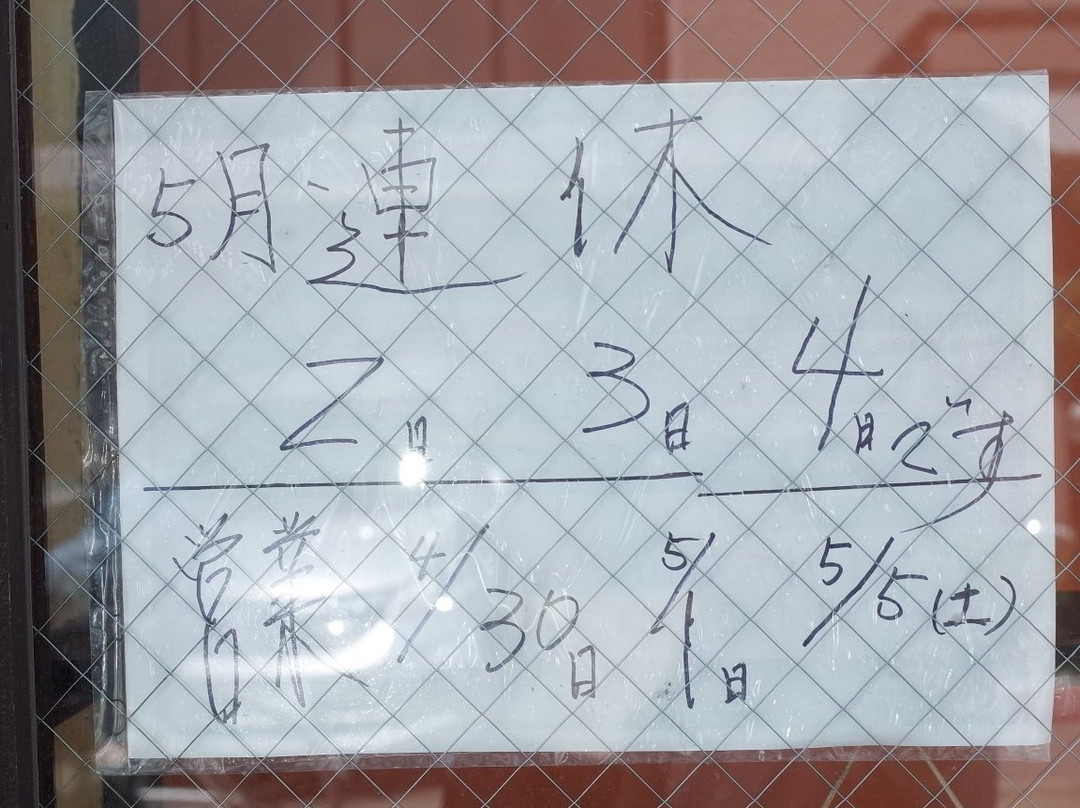 5月連休
2日 3日 4日です
営業 4/30日 5/1日 5/5(土)